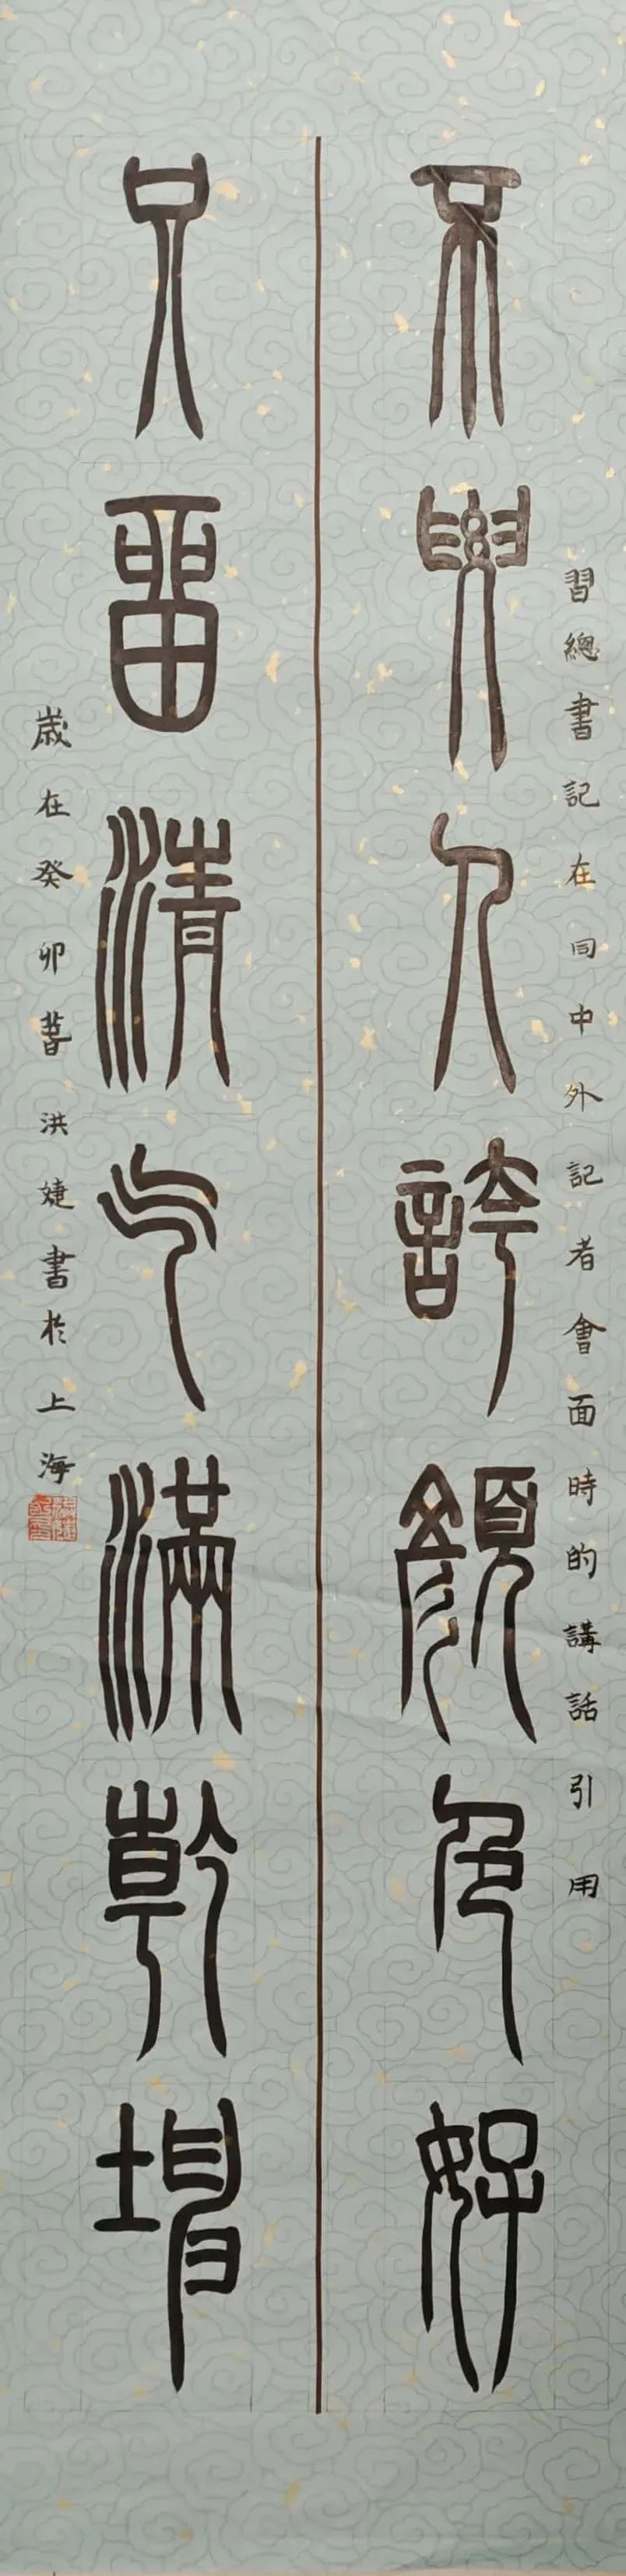 習總書記在同中外記者會面時的講話引用
不要人誇顏色好
只留清气滿乾坤
歲在癸卯暮洪婕書於上海